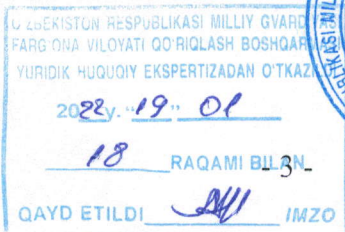 O'ZBEKISTON RESPUBLIKASI MILLIY GVARD
FARG'ONA VILOYATI QO'RIQLASH BOSHQAR
YURIDIK HUQUQIY EKSPERTIZADAN O'TKAZ
2022 y. "19" 01
18 RAQAMI BILAN
- 3 -
QAYD ETILDI IMZO
BLIKASI MIL